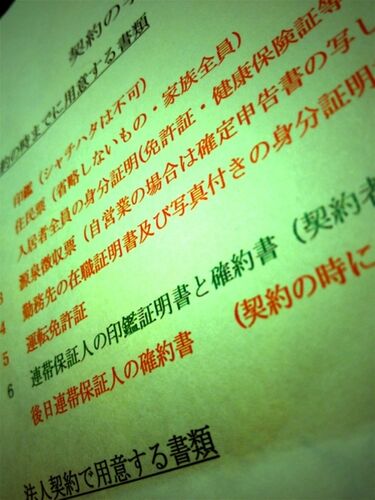 契約の
約の時までに用意する書類
印鑑（シャチハタは不可）
住民票（省略しないもの・家族全員）
入居者全員の身分証明(免許証・健康保険証等
3 源泉徴収票（自営業の場合は確定申告書の写し
4 勤務先の在職証明書及び写真付きの身分証明
5 運転免許証
6 連帯保証人の印鑑証明書と確約書（契約者
後日連帯保証人の確約書　（契約の時に
法人契約で用意する書類